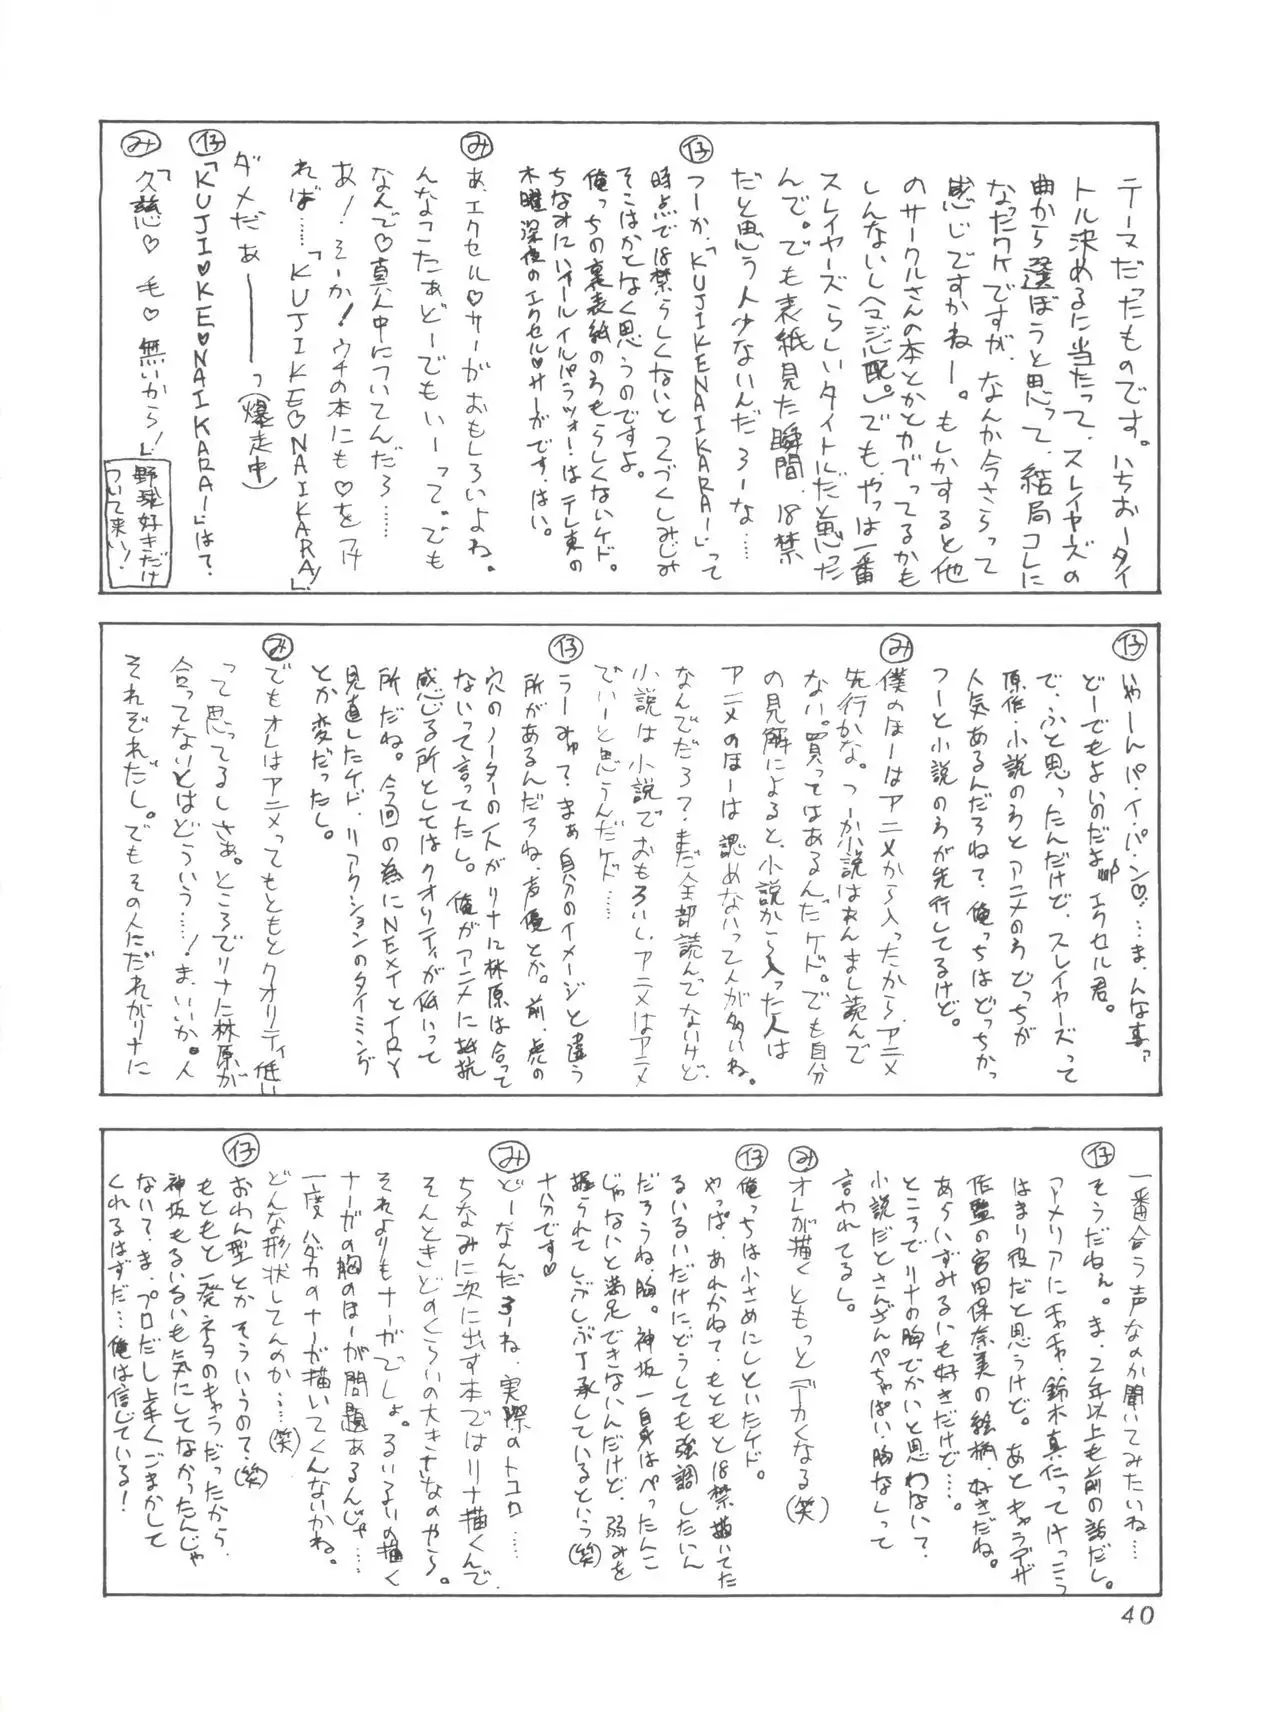 テーマだったものです。いちおータイ
トル決めるに当たって、スレイヤーズの
曲から選ぼうと思って、結局コレに
なったワケですが、なんか今さらって
感じですかねー。もしかすると他
のサークルさんの本とかとカブってるかも
しんないし(マジ心配。)でも、やっぱ一番
スレイヤーズらしいタイトルだと思った
んで。でも表紙見た瞬間、18禁
だと思う人少ないんだろーな……
仔 つーか、「KUJIKENAIKARA!」って
時点で18禁らしくないとつくづくしみじみ
そこはかとなく思うのですよ。
俺っちの裏表紙のろもらしくないケド。
ちなみに「ハイールイルパラッツォ!」はテレ東の
木曜深夜のエクセル♡サーガです、はい。
み あ、エクセル♡サーガおもしろいよね。
んなこたぁどーでもいーって。でも
なんで♡真ん中についてんだろ……
あ!そーか!ウチの本にも♡をつけ
れば……「KUJIKE♡NAIKARA!」
ダメだぁ――――っ(爆走中)
仔 「KUJI♡KE♡NAIKARA!」は?
み 「久慈♡毛♡無いから!」
野球好きだけ
ついて来い!
仔 いやーんパ・イ・パ・ン♡……ま、んな事ァ
どーでもよいのだよ エクセル君。
で、ふと思ったんだけど、スレイヤーズって
原作・小説のろとアニメのろ どっちが
人気あるんだろねて、俺っちはどっちかっ
つーと小説のろが先行してるけど。
み 僕のほーはアニメから入ったから、アニメ
先行かな。つーか小説はあんまし読んで
ない。買ってはあるんだケド。でも自分
の見解によると、小説から入った人は
アニメのほーは 認めないって人が多いね。
なんでだろ?まだ全部読んでないけど、
小説は小説でおもろいし、アニメはアニメ
でいーと思うんだケド……
仔 うーみゅ?まぁ自分のイメージと違う
所があるんだろね、声優とか。前、虎の
穴のノーターの人がリナに林原は合って
ないって言ってたし。俺がアニメに抵抗
感じる所としてはクオリティが低いって
所だね。今回の為にNEXTとTRY
見直したケド、リアクションのタイミング
とか変だったし。
み でもオレはアニメってもともとクオリティ低い
って思ってるしさぁ。ところでリナに林原が
合ってないとはどういう……!ま、いいか。人
それぞれだし。でもその人にだれがリナに
一番合う声なのか聞いてみたいね……
仔 そうだねぇ。ま、2年以上も前の話だし。
アメリアにチャチャ・鈴木真仁ってけっこう
はまり役だと思うけど。あとキャラデザ
作監の宮田保奈美の絵柄、好きだね。
あらいずみるいも好きだけど…。
ところで、リナの胸でかいと思わない?
小説だとさんざんぺちゃぱい、胸なしって
言われてるし。
み オレが描くともっとデーカくなる(笑)
仔 俺っちは小さめにしといたケド。
やっぱ、あれかねて、もともと18禁描いてた
るいるいだけに、どうしても強調したいん
だろうね、胸。神坂一自身はぺったんこ
じゃないと満足できないんだけど、弱みを
握られてしぶしぶ了承しているという(笑)
十分です♥
み どーなんだろーね、実際のトコロ……
ちなみに次に出す本ではリナ描くんで、
そんときどのくらいの大きさなのやら。
それよりもナーガでしょ。るいるいの描く
ナーガの胸のほーが問題あるんじゃ……
一度、ハダカのナーガ描いてくんないかね。
どんな形状してんのか……(笑)
仔 おわん型とかそういうので?(笑)
もともと一発ネタのキャラだったから、
神坂もるいるいも気にしてなかったんじゃ
ない?ま、プロだし上手くごまかして
くれるはずだ…俺は信じている!
40